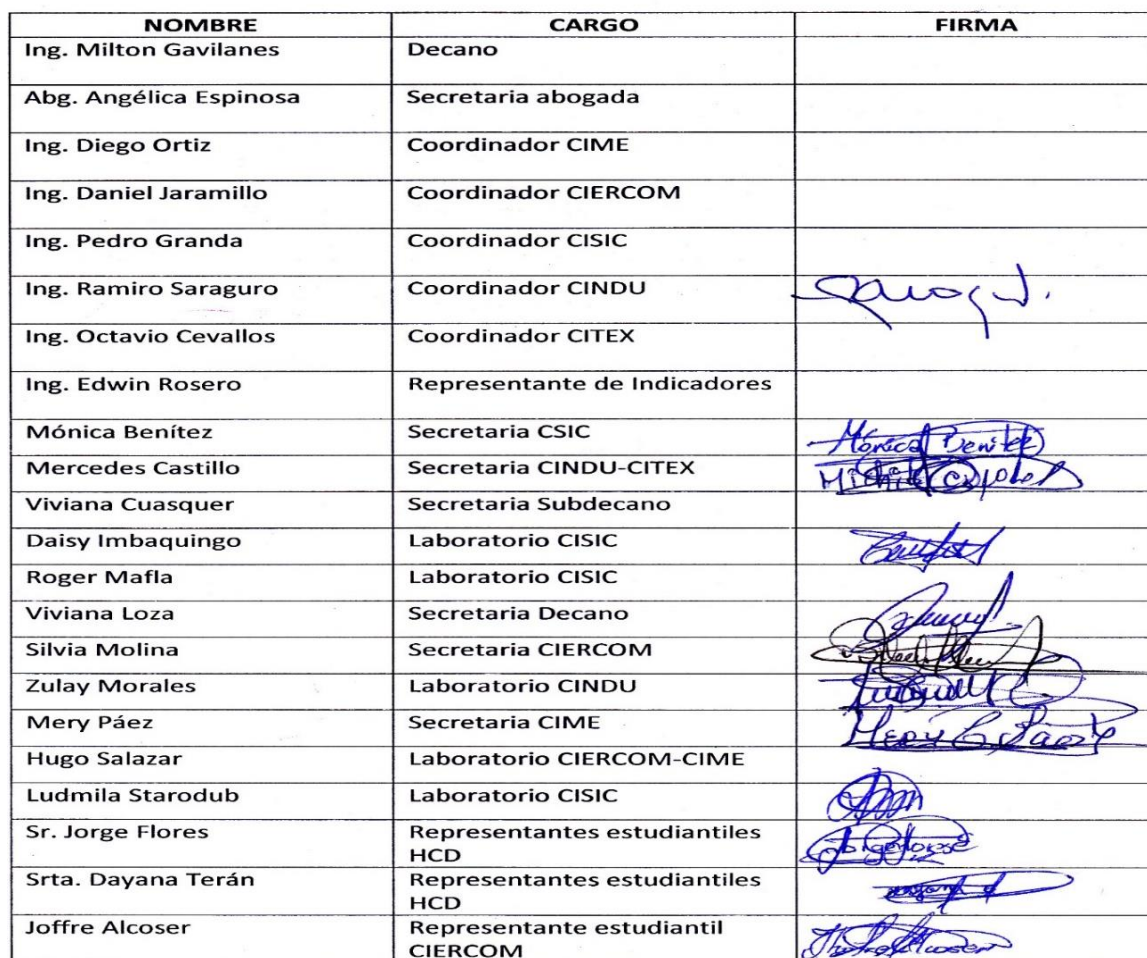 NOMBRE CARGO FIRMA
Ing. Milton Gavilanes Decano
Abg. Angélica Espinosa Secretaria abogada
Ing. Diego Ortiz Coordinador CIME
Ing. Daniel Jaramillo Coordinador CIERCOM
Ing. Pedro Granda Coordinador CISIC
Ing. Ramiro Saraguro Coordinador CINDU
Ing. Octavio Cevallos Coordinador CITEX
Ing. Edwin Rosero Representante de Indicadores
Mónica Benítez Secretaria CSIC Mónica Benítez
Mercedes Castillo Secretaria CINDU-CITEX
Viviana Cuasquer Secretaria Subdecano
Daisy Imbaquingo Laboratorio CISIC
Roger Mafla Laboratorio CISIC
Viviana Loza Secretaria Decano
Silvia Molina Secretaria CIERCOM
Zulay Morales Laboratorio CINDU
Mery Páez Secretaria CIME
Hugo Salazar Laboratorio CIERCOM-CIME
Ludmila Starodub Laboratorio CISIC
Sr. Jorge Flores Representantes estudiantiles
HCD
Srta. Dayana Terán Representantes estudiantiles
HCD
Joffre Alcoser Representante estudiantil
CIERCOM